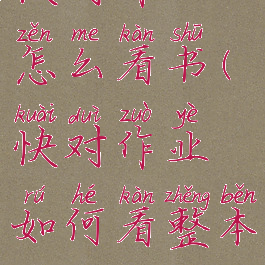 zěn me kàn shū
怎么看书(
kuài duì zuò yè
快对作业
rú hé kàn zhěng běn
如何看整本